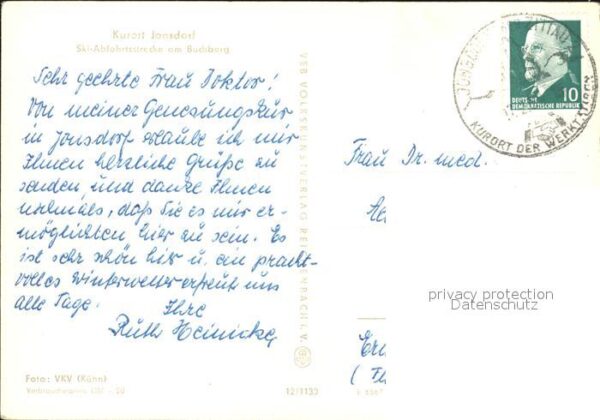 Kurort Jonsdorf
Ski-Abfahrtsstrecke am Buchberg
Sehr geehrte Frau Doktor!
Von meiner Genesungskur
in Jonsdorf erlaube ich mir
Ihnen herzliche Grüße zu
senden und danke Ihnen
nochmals, daß Sie es mir er-
möglichten hier zu sein. Es
ist sehr schön hier u. ein pracht-
volles Winterwetter erfreut uns
alle Tage.
Ihre
Ruth Heinicke
Foto: VKV (Kühn)
12/1133
VEB VOLKSKUNSTVERLAG REICHENBACH i. V.
KURORT DER WERKTÄTIGEN
10
DEUTSCHE
DEMOKRATISCHE REPUBLIK
Frau Dr. med.
privacy protection
Datenschutz